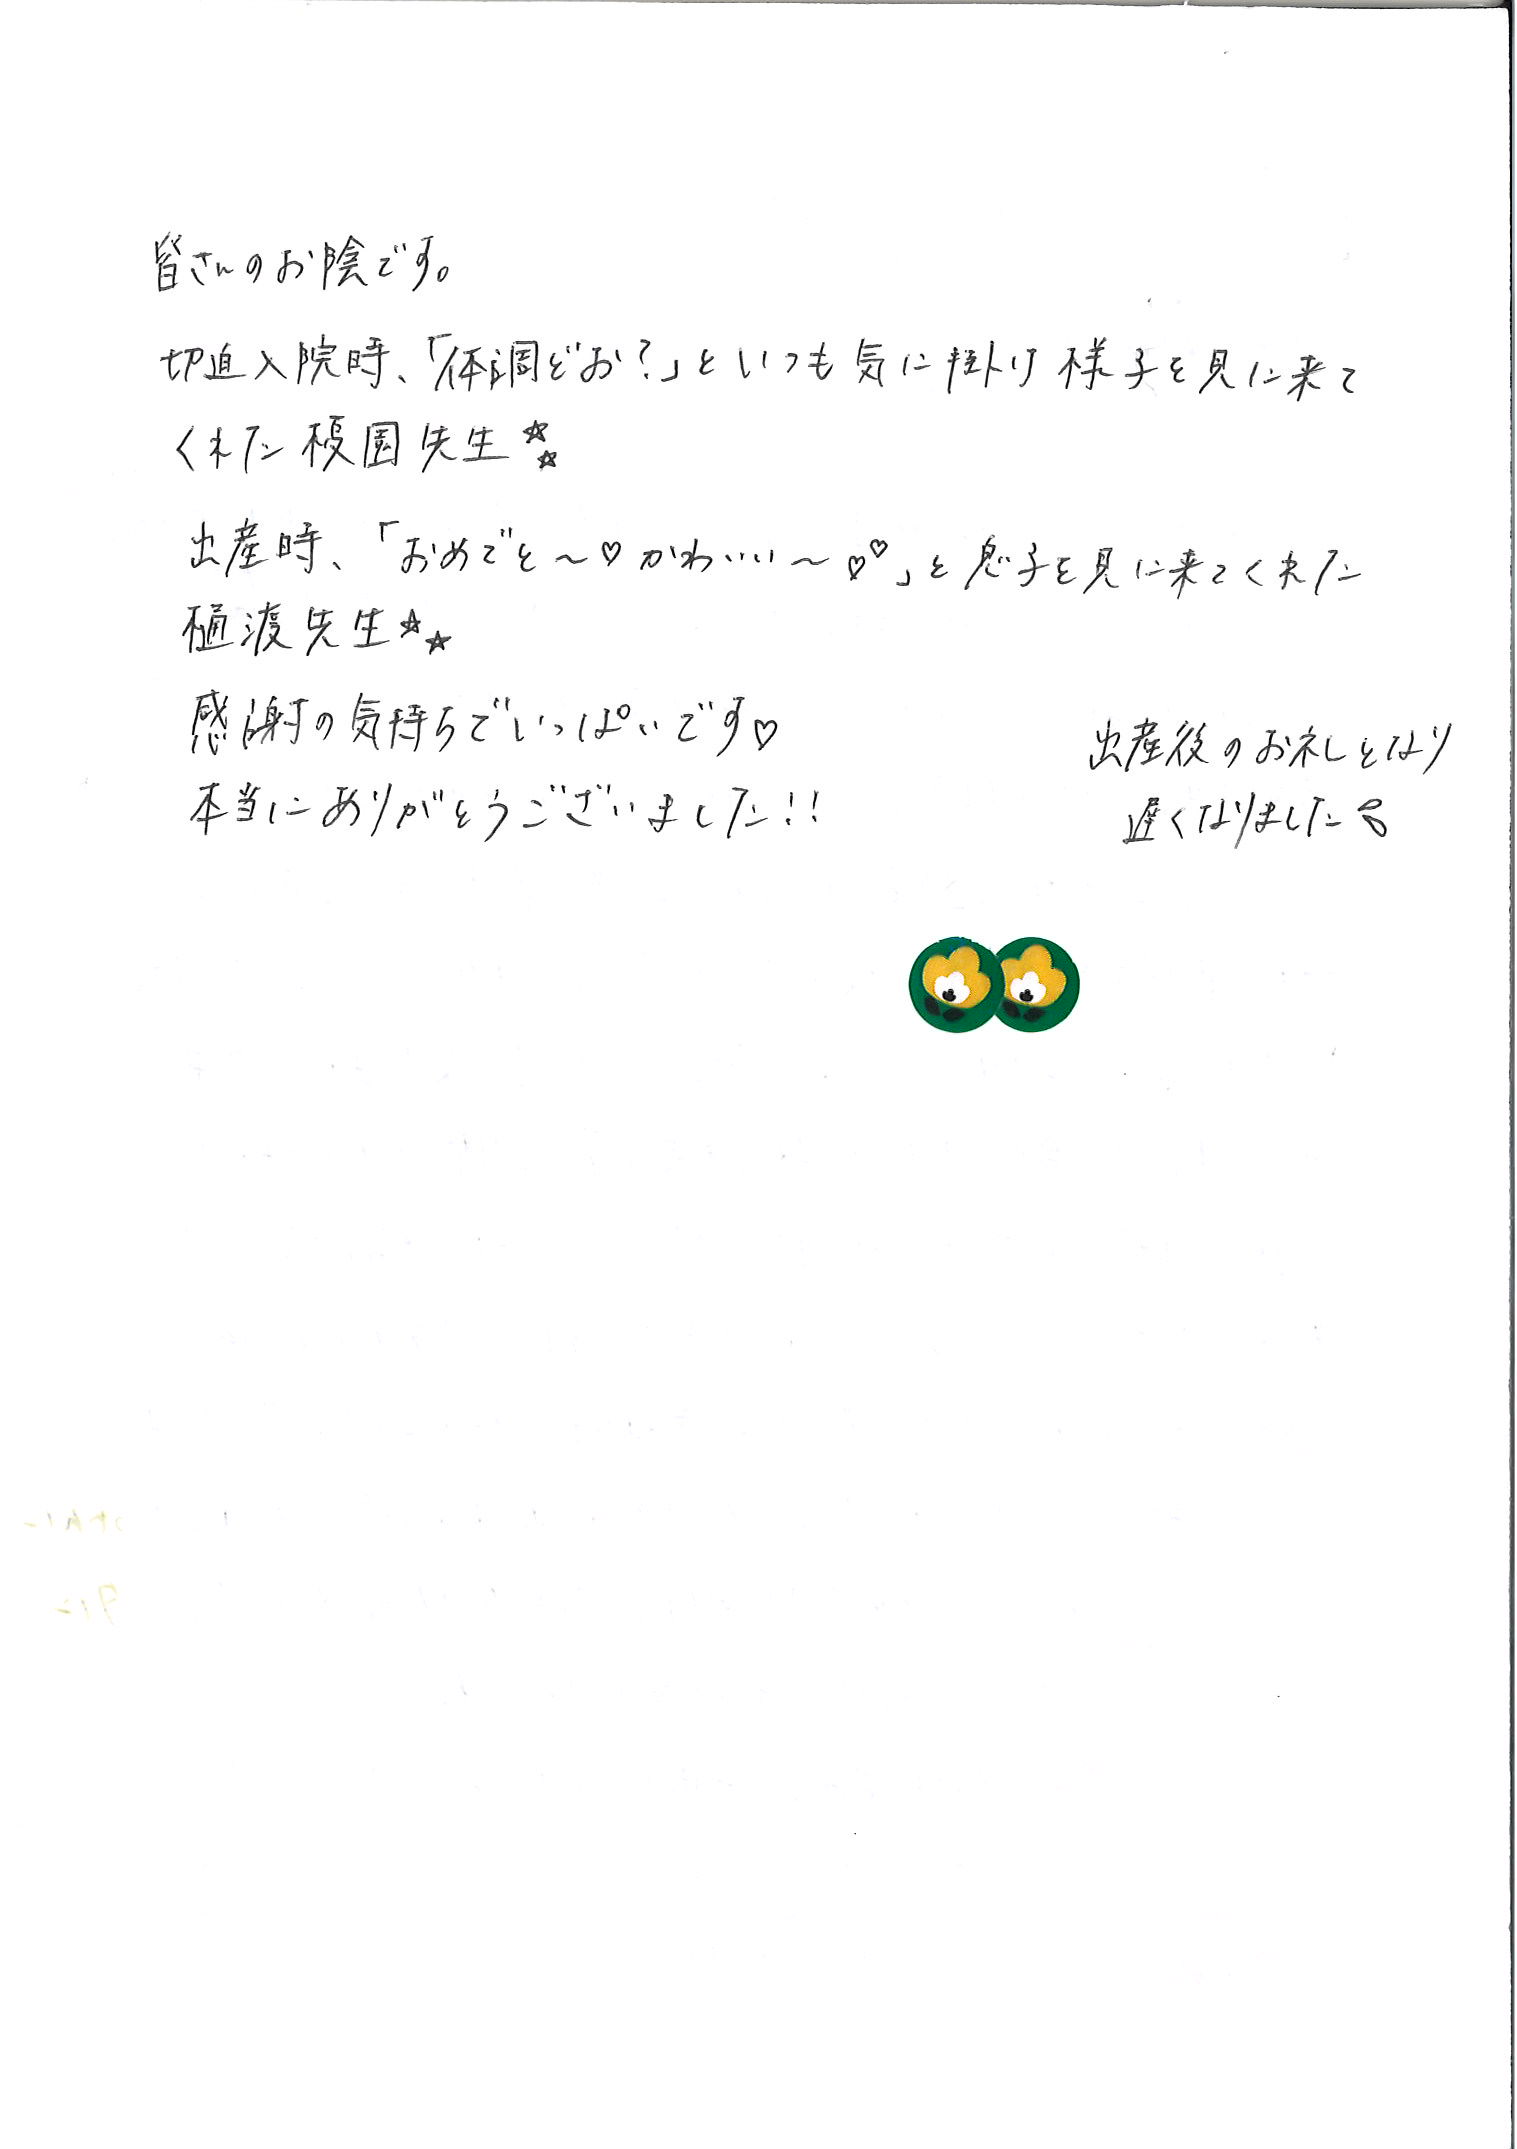 皆さんのお陰です。
切迫入院時、「体調どお?」といつも気に掛け様子を見に来て
くれた榎園先生☆☆
出産時、「おめでと~♡かわいいい~♡♡」と息子を見に来てくれた
樋渡先生☆☆
感謝の気持ちでいっぱいです♡
本当にありがとうございました!!
出産後のお礼となり
遅くなりました